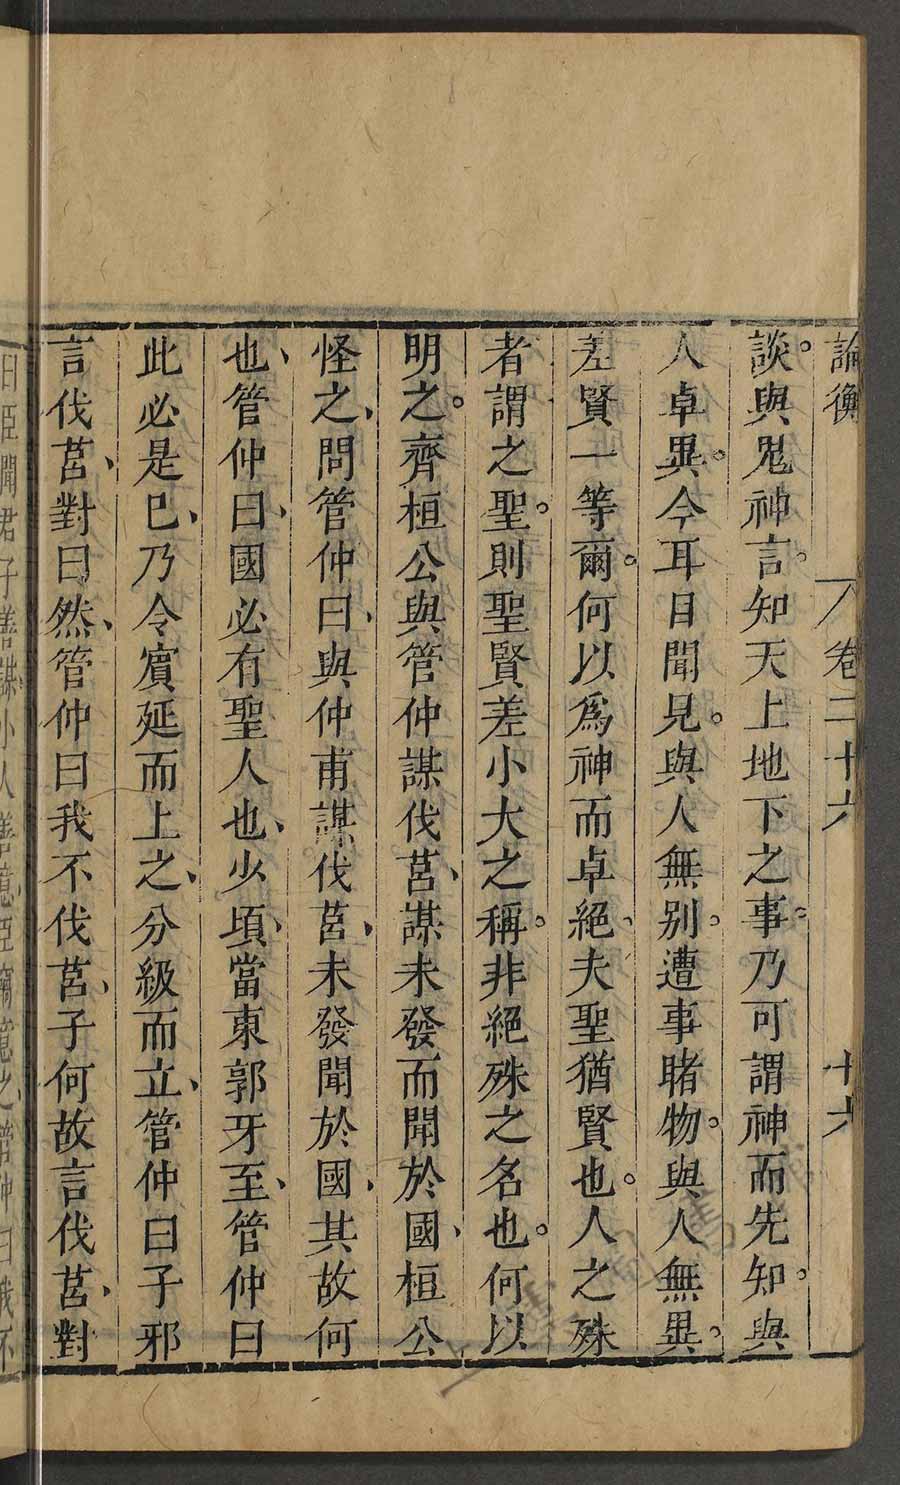 論衡 卷二十六 十六
談。與鬼神言。知天上地下之事。乃可謂神而先知。與
人卓異。今耳目聞見。與人無别。遭事睹物。與人無異。
差賢一等爾。何以爲神而卓絕。夫聖猶賢也。人之殊
者謂之聖。則聖賢差小大之稱。非絕殊之名也。何以
明之。齊桓公與管仲謀伐莒、謀未發而聞於國、桓公
怪之、問管仲曰、與仲甫謀伐莒、未發聞於國、其故何
也、管仲曰、國必有聖人也、少頃、當東郭牙至、管仲曰
此必是已、乃令賓延而上之、分級而立、管仲曰子邪
言伐莒、對曰然、管仲曰我不伐莒、子何故言伐莒、對
曰臣聞君子善謀小人善意臣竊意之管仲曰我不